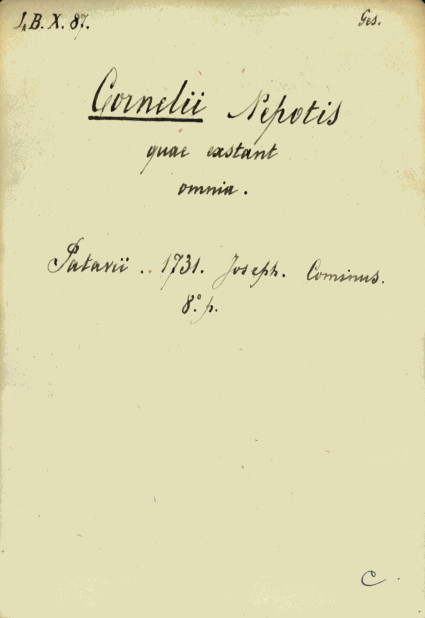 I, B. X. 87.
Ges.
Cornelii Nepotis
quae exstant
omnia.
Patavii . . 1731. Joseph. Cominus.
8° p.
C .